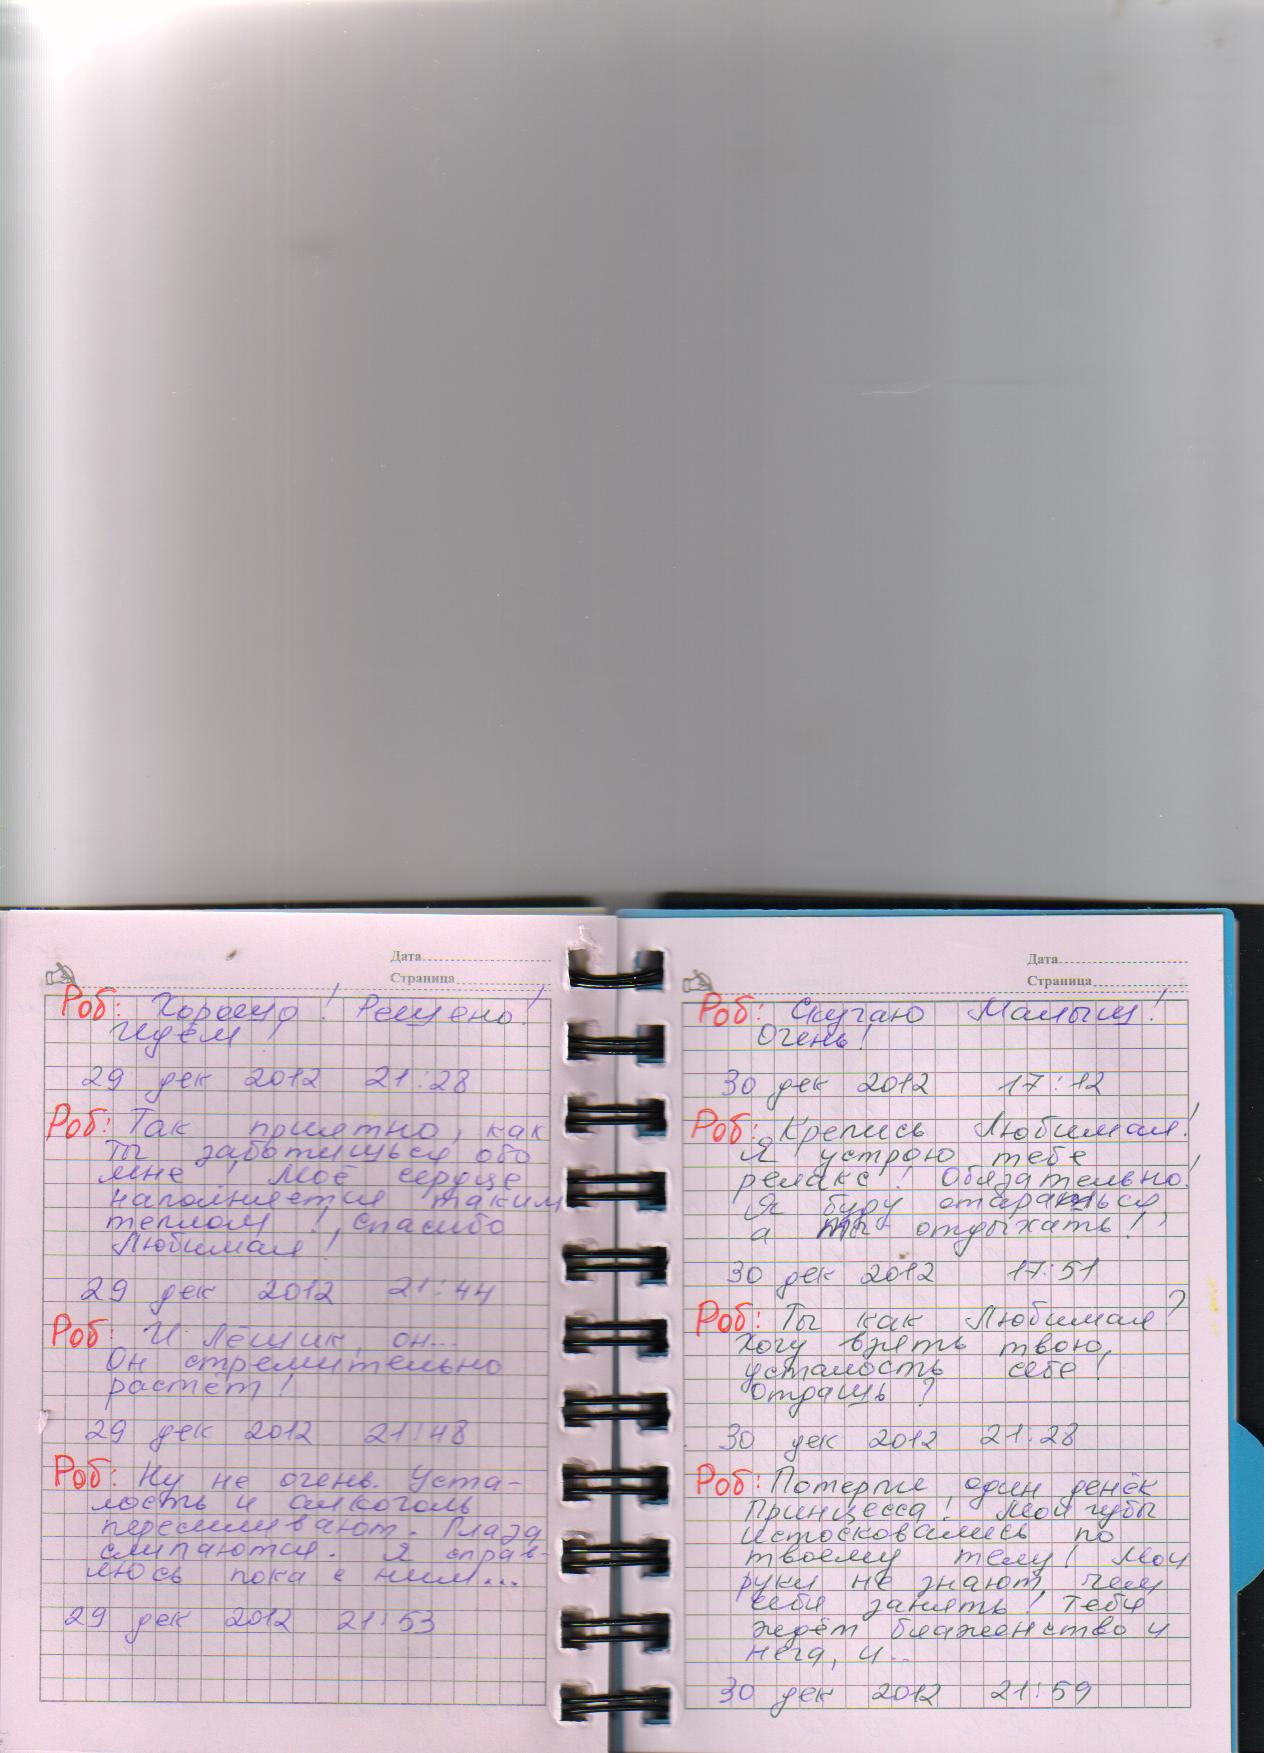 Дата
Страница
Роб: Хорошо! Решено!
Идём!
29 дек 2012 21:28
Роб: Так приятно, как
ты заботишься обо
мне! Моё сердце
наполняется таким
теплом! Спасибо
Любимая!
29 дек 2012 21:44
Роб: И Лёщик, он...
Он стремительно
растёт!
29 дек 2012 21:48
Роб: Ну не очень. Уста-
лость и алкоголь
пересиливают. Глаза
слипаются. Я справ-
люсь пока с ним...
29 дек 2012 21:53
Дата
Страница
Роб: Скучаю Малыш!
Очень!
30 дек 2012 17:12
Роб: Крепись Любимая!
Я устрою тебе
релакс! Обязательно!
Я буду стараться,
а ты отдыхать!
30 дек 2012 17:51
Роб: Ты как Любимая?
Хочу взять твою
усталость себе!
Отдашь?
30 дек 2012 21:28
Роб: Потерпи один денёк
Принцесса! Мои губы
истосковались по
твоему телу! Мои
руки не знают, чем
себя занять! Тебя
ждёт блаженство и
нега, и...
30 дек 2012 21:59